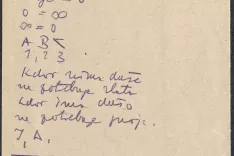 0 = ∞
∞ = 0
A B
1, 2 3
Kdor nima duše
ne potrebuje zlata
kdor ima dušo
ne potrebuje
I. A.